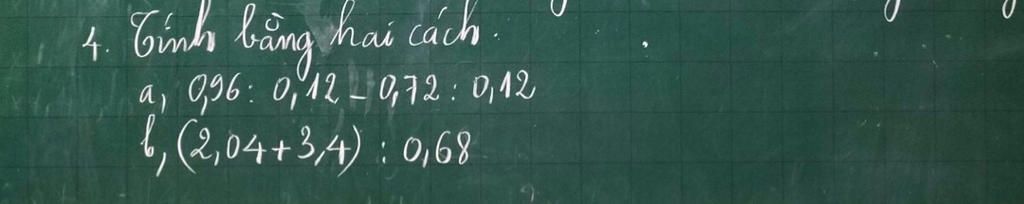 4. Tính bằng hai cách.
a, 0,96 : 0,12 - 0,72 : 0,12
b, (2,04 + 3,4) : 0,68